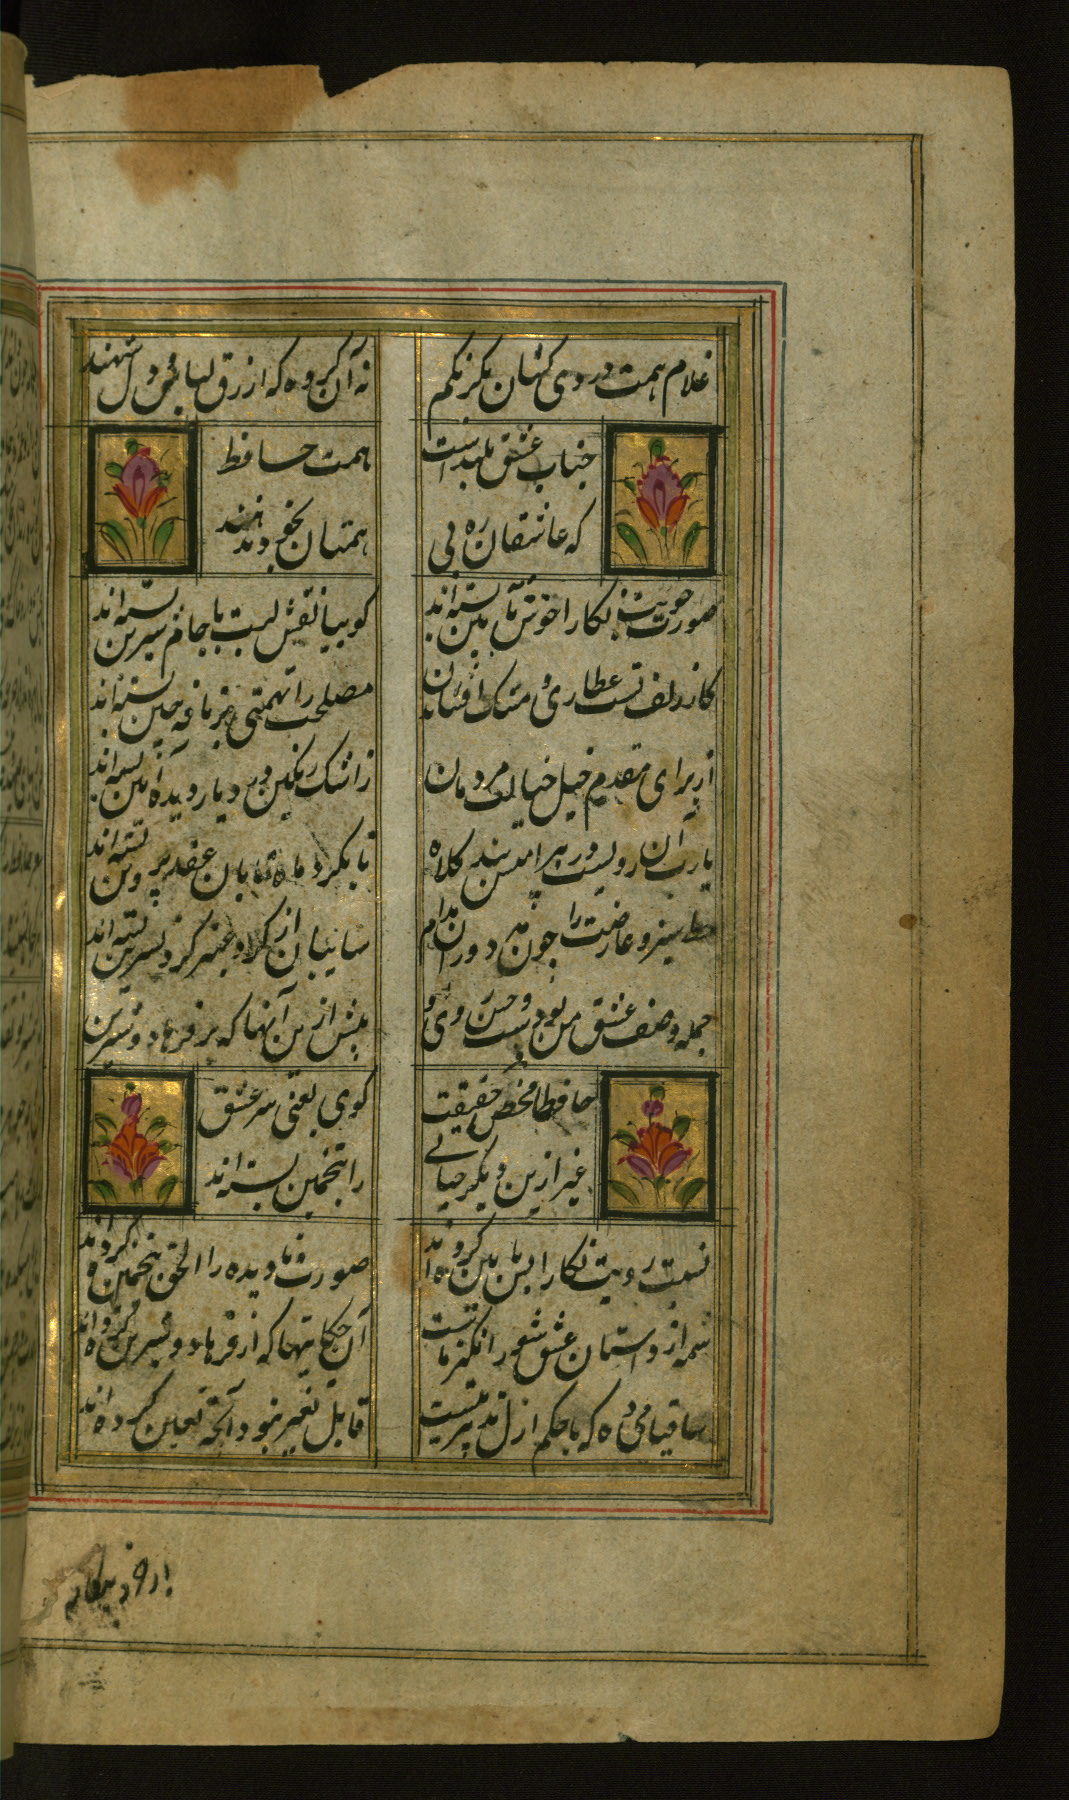 غلام همت دردی کشان یکرنگم
نه آن گروه که ازرق لباس و دل سیهند
جناب عشق بلندست
همت حافظ
که عاشقان ره بی
همتان بخود ندهند
صورت خوبت نگارا خوش بآیین بسته اند
گوییا نقش لبت با جام شیرین بسته اند
کار زلف تست عطاری و مشک افشان
مصلحت را تهمتی بر نافه چین بسته اند
از برای مقدم خیل خیالت مردمان
ز اشک رنگین در دیار دیده آیین بسته اند
یارب آن رویست و در پیرامنش بند کلاه
تا بگرد ماه تابان عقد پروین بسته اند
خط سبز و عارضت را چون مه دوران مدام
سایبان از گرد عنبر گرد نسرین بسته اند
جمله وصف عشق من بودست و حسن روی تو
پیش ازین آنها که بر فرهاد و شیرین
حافظا محض حقیقت
گوی یعنی سر عشق
غیر ازین دیگر خیالی
را بتخمین بسته اند
نسبت رویت نگارا بس بآیین کرده اند
صورت نادیده را الحق بتخمین کرده اند
شمه از داستان عشق شورانگیز ماست
آن حکایتها که از فرهاد و شیرین کرده اند
ساقیا می ده که با حکم ازل تدبیر نیست
قابل تغییر نبود آنچه تعیین کرده اند